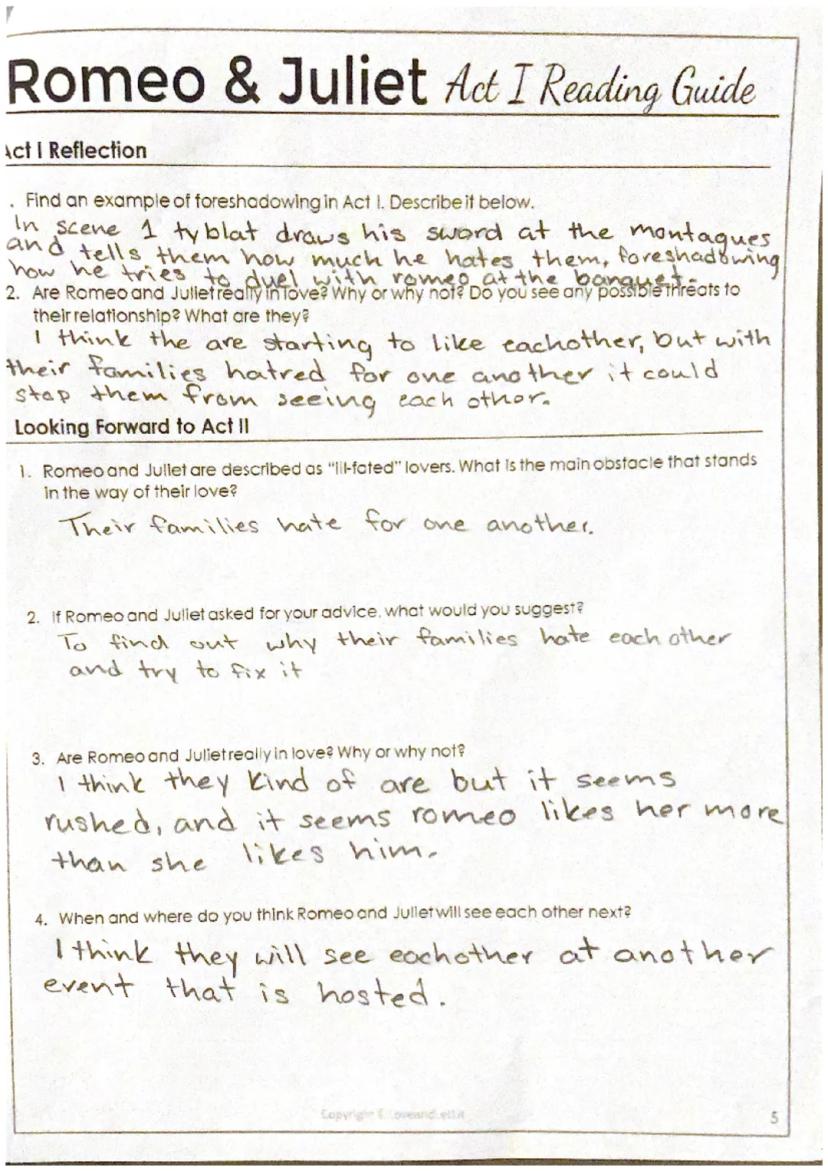 Romeo & Juliet Act I Reading Guide
Act I Reflection
. Find an example of foreshadowing in Act I. Describe it below.
In scene 1 tyblat draws his sword at the montagues
and tells them how much he hates them, foreshadowing
how he tries to duel with romeo at the banquet.
2. Are Romeo and Juliet really in love? Why or why not? Do you see any possible threats to
their relationship? What are they?
I think the are starting to like eachother, but with
their families hatred for one another it could
stop them from seeing each other.
Looking Forward to Act II
1. Romeo and Juliet are described as "ill-fated" lovers. What is the main obstacle that stands
in the way of their love?
Their families hate for one another.
2. If Romeo and Juliet asked for your advice, what would you suggest?
To find out why their families hate each other
and try to fix it
3. Are Romeo and Juliet really in love? Why or why not?
I think they kind of are but it seems
rushed, and it seems romeo likes her more
than she likes him.
4. When and where do you think Romeo and Juliet will see each other next?
I think they will see eachother at another
event that is hosted.
Copyright
5